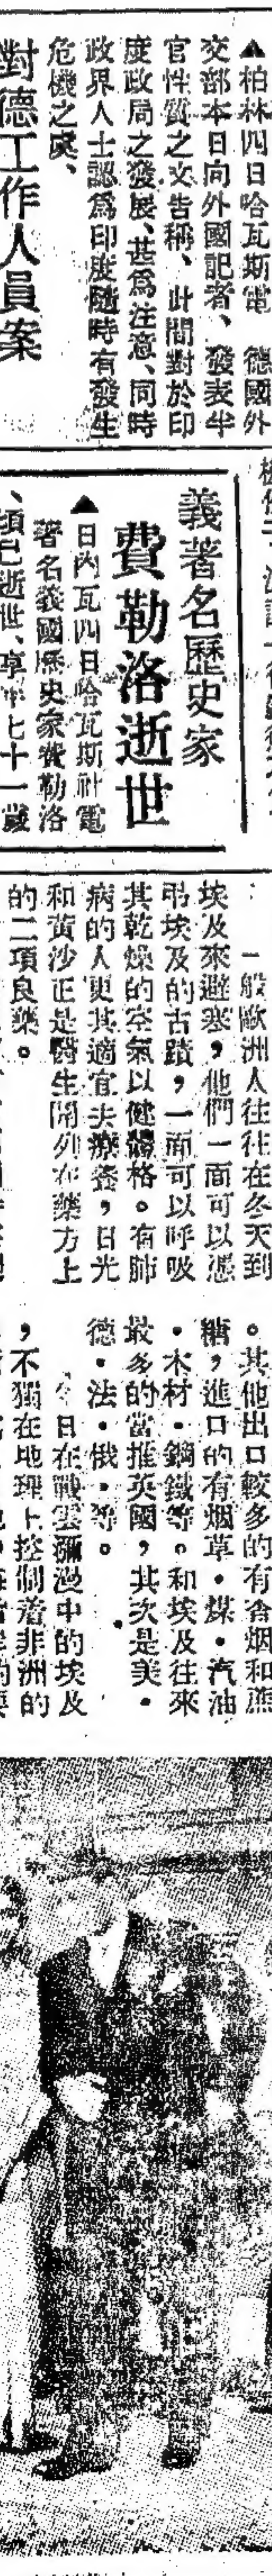 ▲柏林四日哈瓦斯電　德國外
交部本日向外國記者、發表半
官性質之文告稱、此間對於印
度政局之發展、甚爲注意、同時
政界人士認爲印度隨時有發生
危機之虞、
對德工作人員案
義著名歷史家
費勒洛逝世
▲日內瓦四日哈瓦斯社電
著名義國歷史家費勒洛
、頃已逝世、享年七十一歲
一般歐洲人往往在冬天到
埃及來避寒，他們一面可以憑
弔埃及的古蹟，一面可以呼吸
其乾燥的空氣以健體格。有肺
病的人更其適宜去療養，日光
和黃沙正是醫生開列在藥方上
的二項良藥。
。其他出口較多的有香烟和蔗
糖，進口的有烟草・煤・汽油
・木材・鋼鐵等。和埃及往來
最多的當推英國，其次是美・
德・法・俄・等。
今日在戰雲彌漫中的埃及
，不獨在地理上控制着非洲的